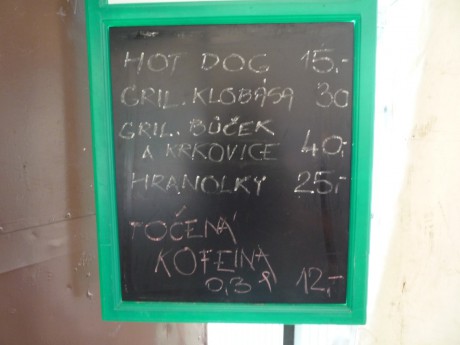 HOT DOG 15,-
GRIL. KLOBÁSA 30
GRIL. BŮČEK
A KRKOVICE 40,-
HRANOLKY 25,-
TOČENÁ
KOFEINA
0,3 l 12,-